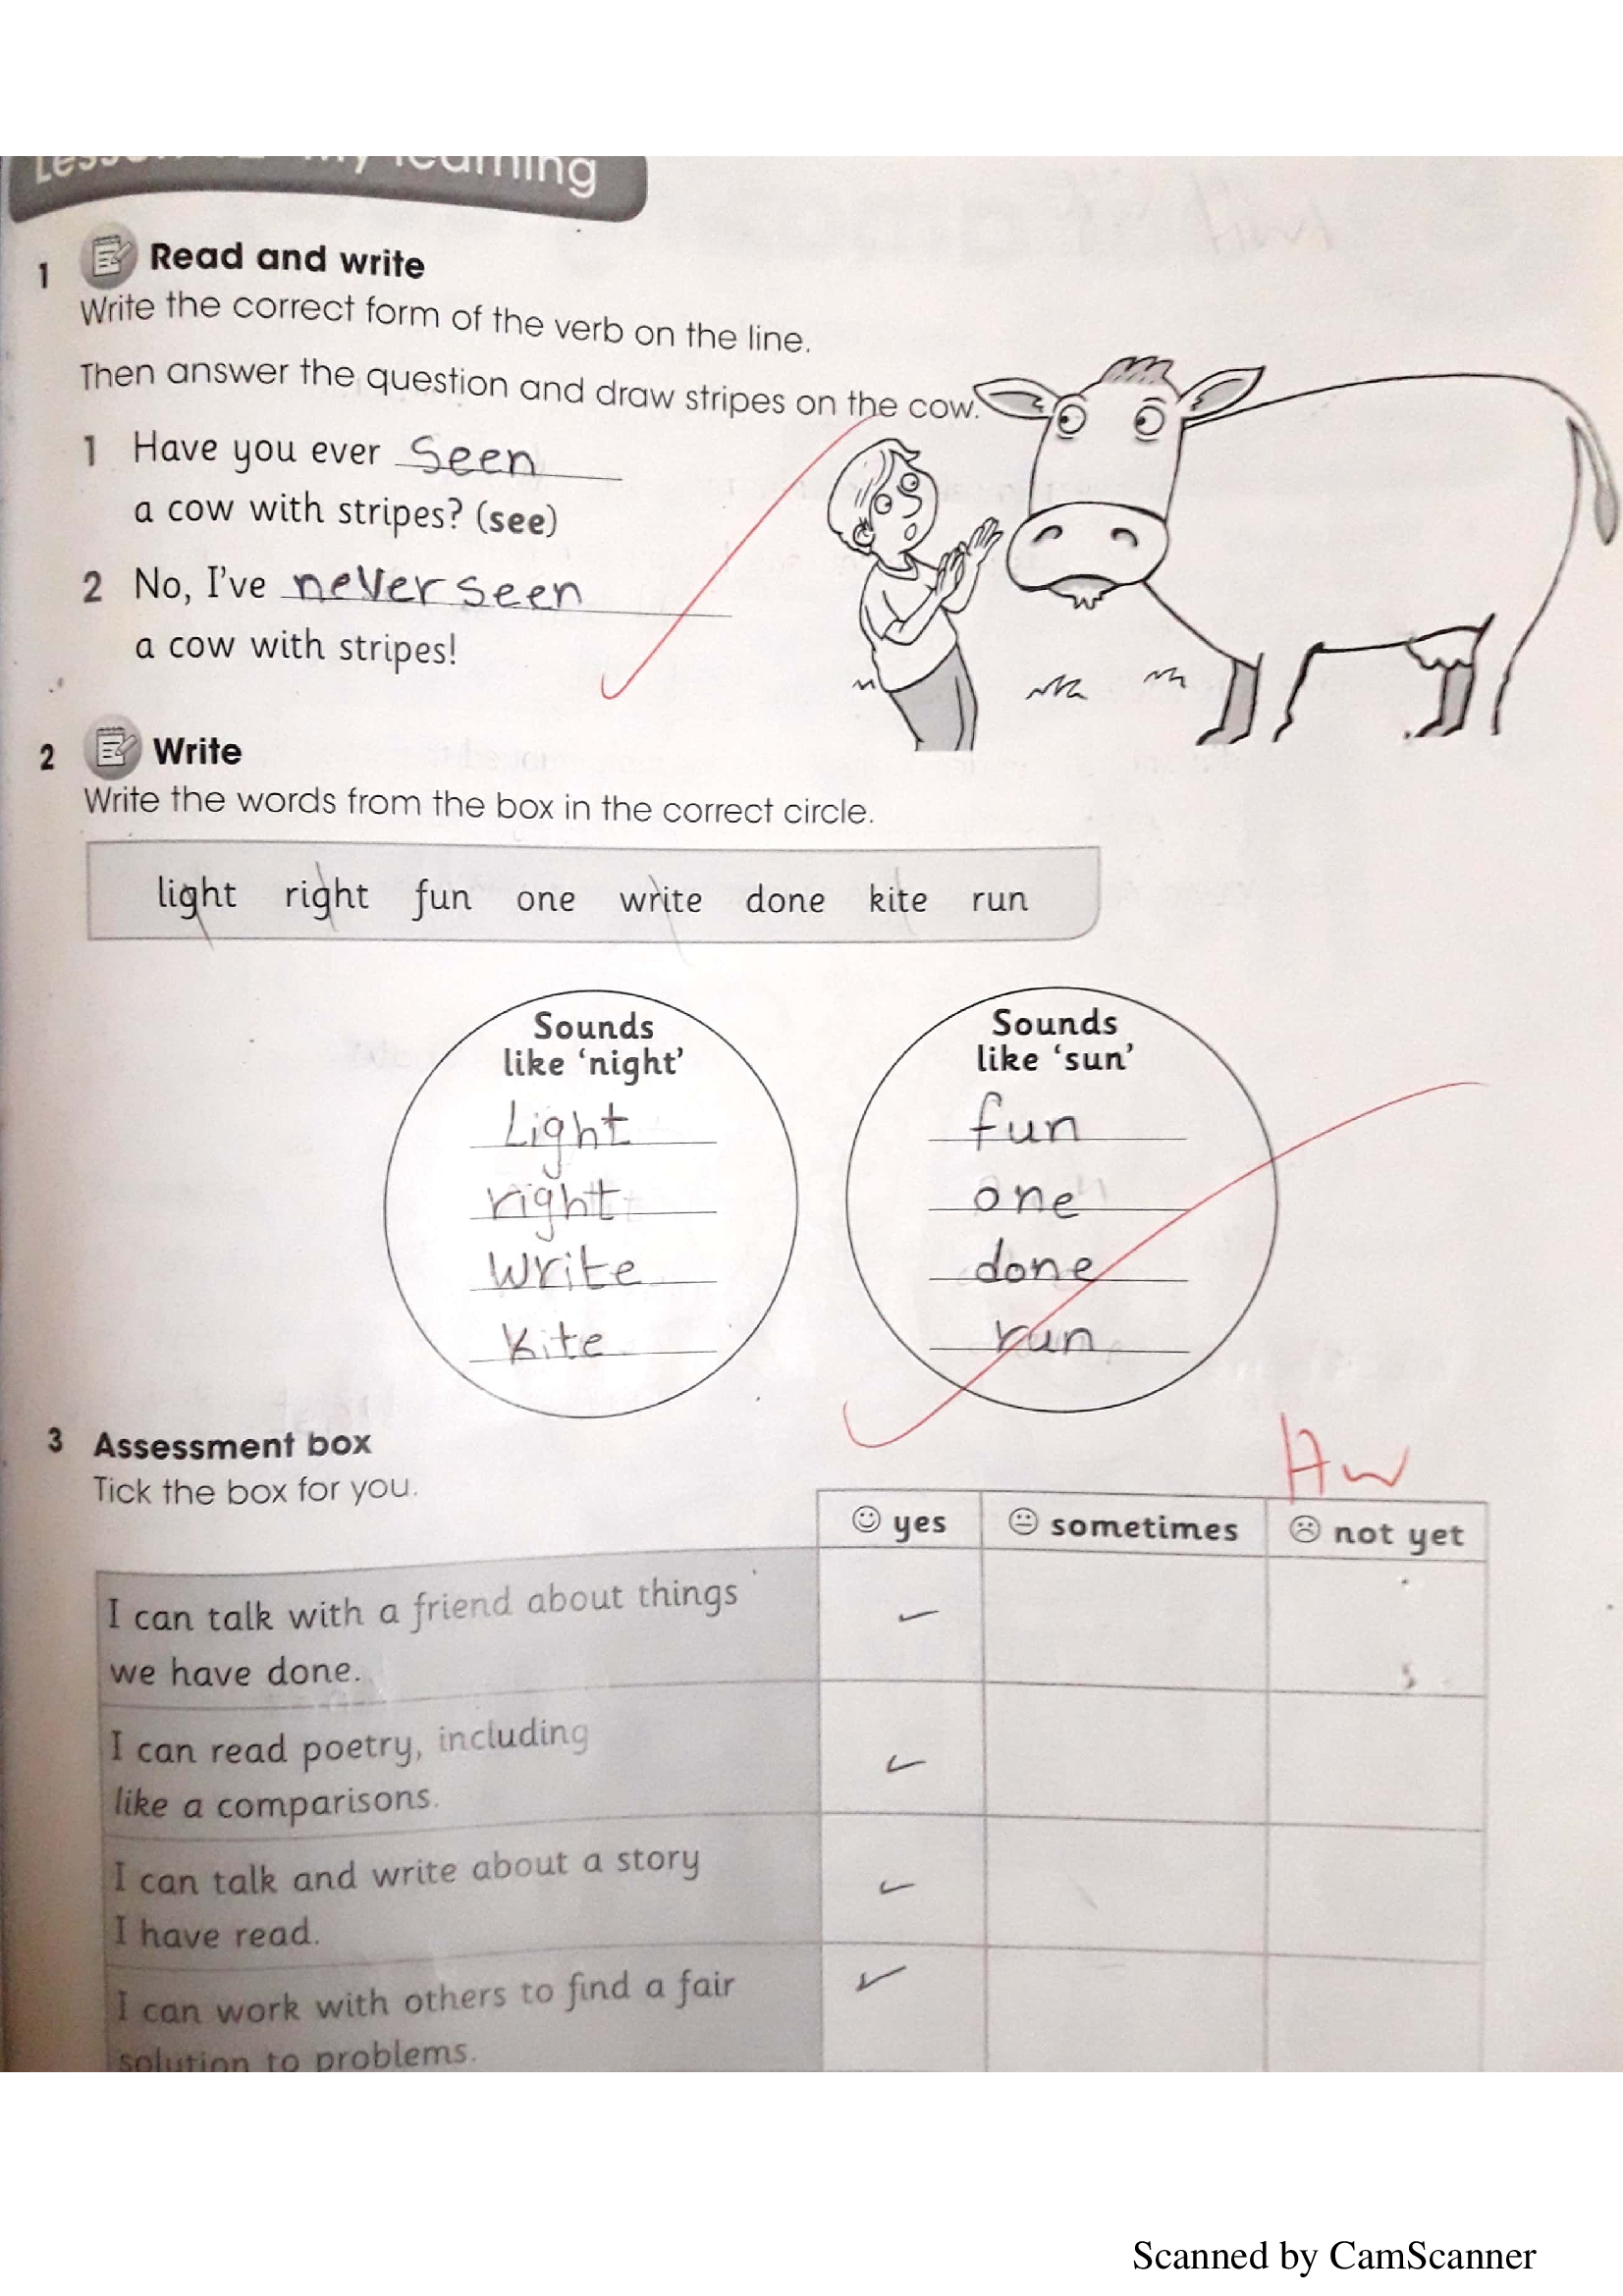 My learning
1 Read and write
Write the correct form of the verb on the line.
Then answer the question and draw stripes on the cow.
1 Have you ever seen
a cow with stripes? (see)
2 No, I've never seen
a cow with stripes!
2 Write
Write the words from the box in the correct circle.
light right fun one write done kite run
Sounds
like 'night'
Light
right
write
kite
Sounds
like 'sun'
fun
one
done
run
3 Assessment box
Tick the box for you.
Hw
yes sometimes not yet
I can talk with a friend about things
we have done.
I can read poetry, including
like a comparisons.
I can talk and write about a story
I have read.
I can work with others to find a fair
solution to problems.
Scanned by CamScanner